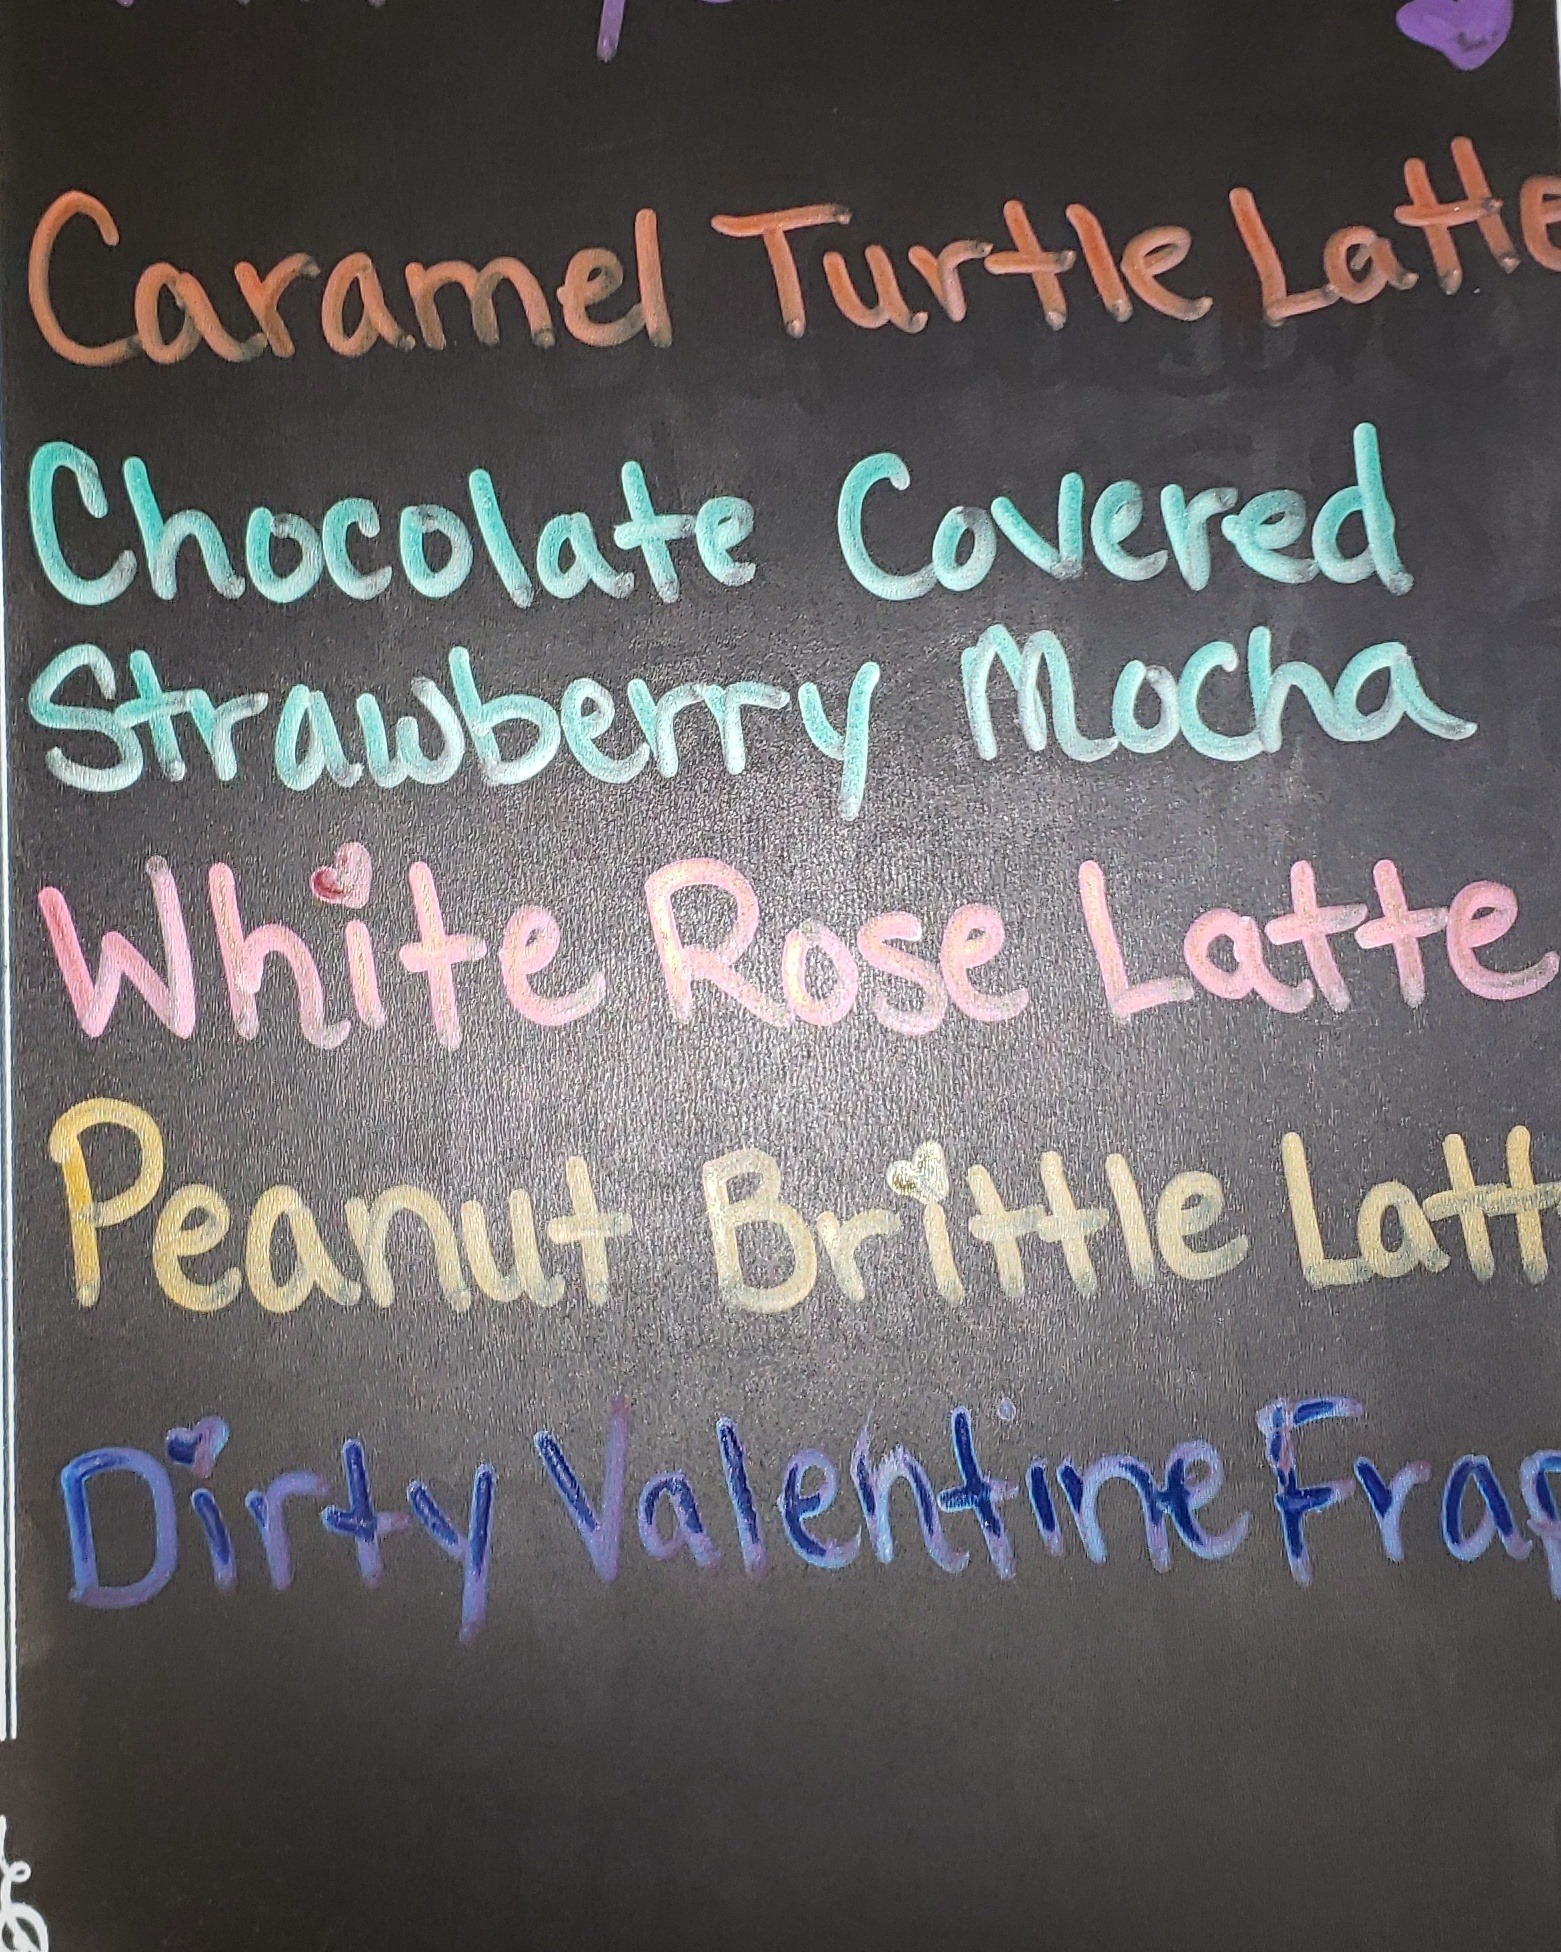 Caramel Turtle Latte
Chocolate Covered
Strawberry Mocha
White Rose Latte
Peanut Brittle Latt
Dirty Valentine Frap